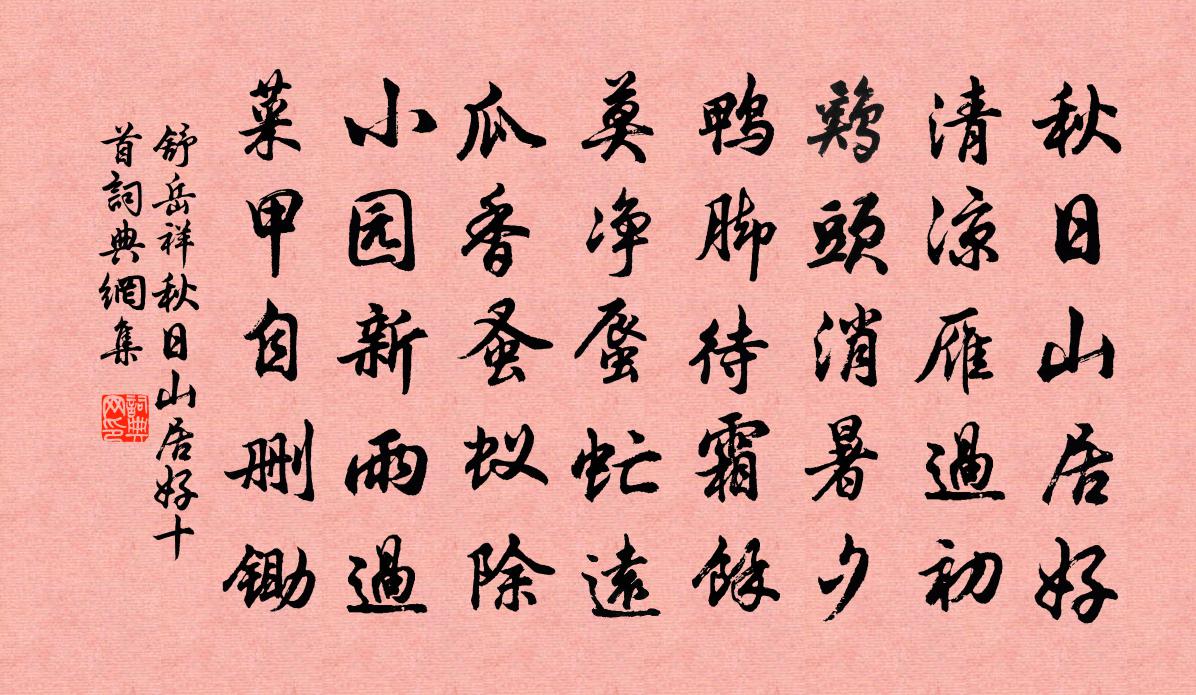 秋日山居好
清涼雁過初
鷄頭消暑夕
鴨脚待霜餘
莫净蜃虻遠
瓜香蚤蚁除
小园新雨過
菜甲自删鋤
舒岳祥秋日山居好十
首詞典網集
詞典网印